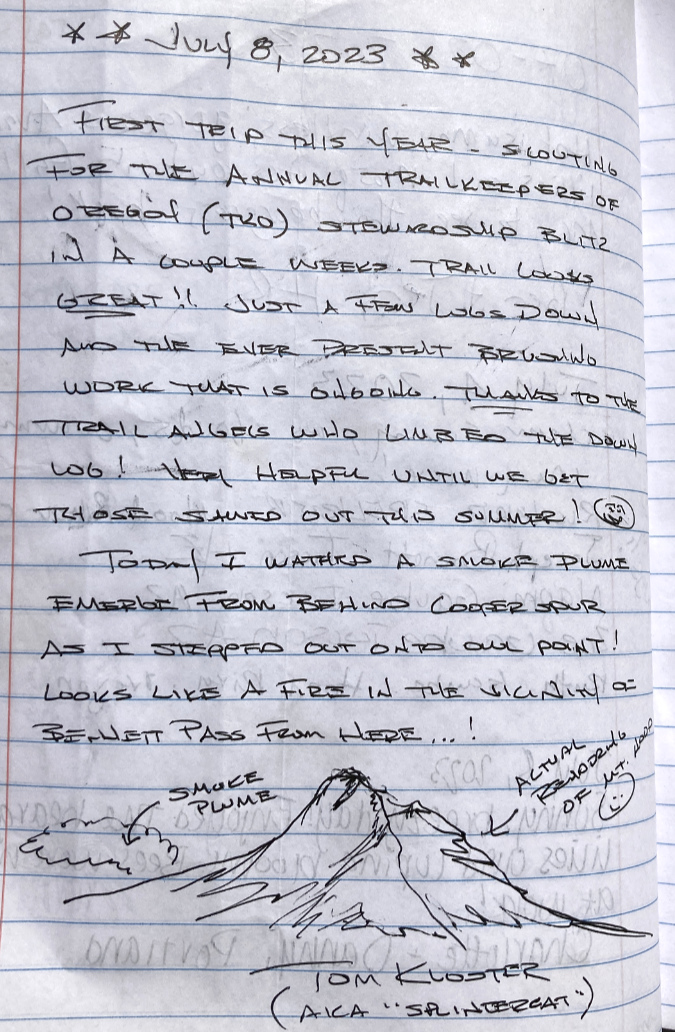 ** JULY 8, 2023 **
FIRST TRIP THIS YEAR - SCOUTING
FOR THE ANNUAL TRAILKEEPERS OF
OREGON (TKO) STEWARDSHIP BLITZ
IN A COUPLE WEEKS. TRAIL LOOKS
GREAT!! JUST A FEW LOGS DOWN
AND THE EVER PRESENT BRUSHING
WORK THAT IS ONGOING. THANKS TO THE
TRAIL ANGELS WHO LIMBED THE DOWN
LOG! VERY HELPFUL UNTIL WE GET
THOSE SAWED OUT THIS SUMMER!
TODAY I WATCHED A SMOKE PLUME
EMERGE FROM BEHIND COOPER SPUR
AS I STEPPED OUT ONTO OWL POINT!
LOOKS LIKE A FIRE IN THE VICINITY OF
BENNETT PASS FROM HERE...!
SMOKE
PLUME
ACTUAL
RENDERING
OF MT. HOOD
TOM KLOSTER
(AKA "SPLINTERCAT")